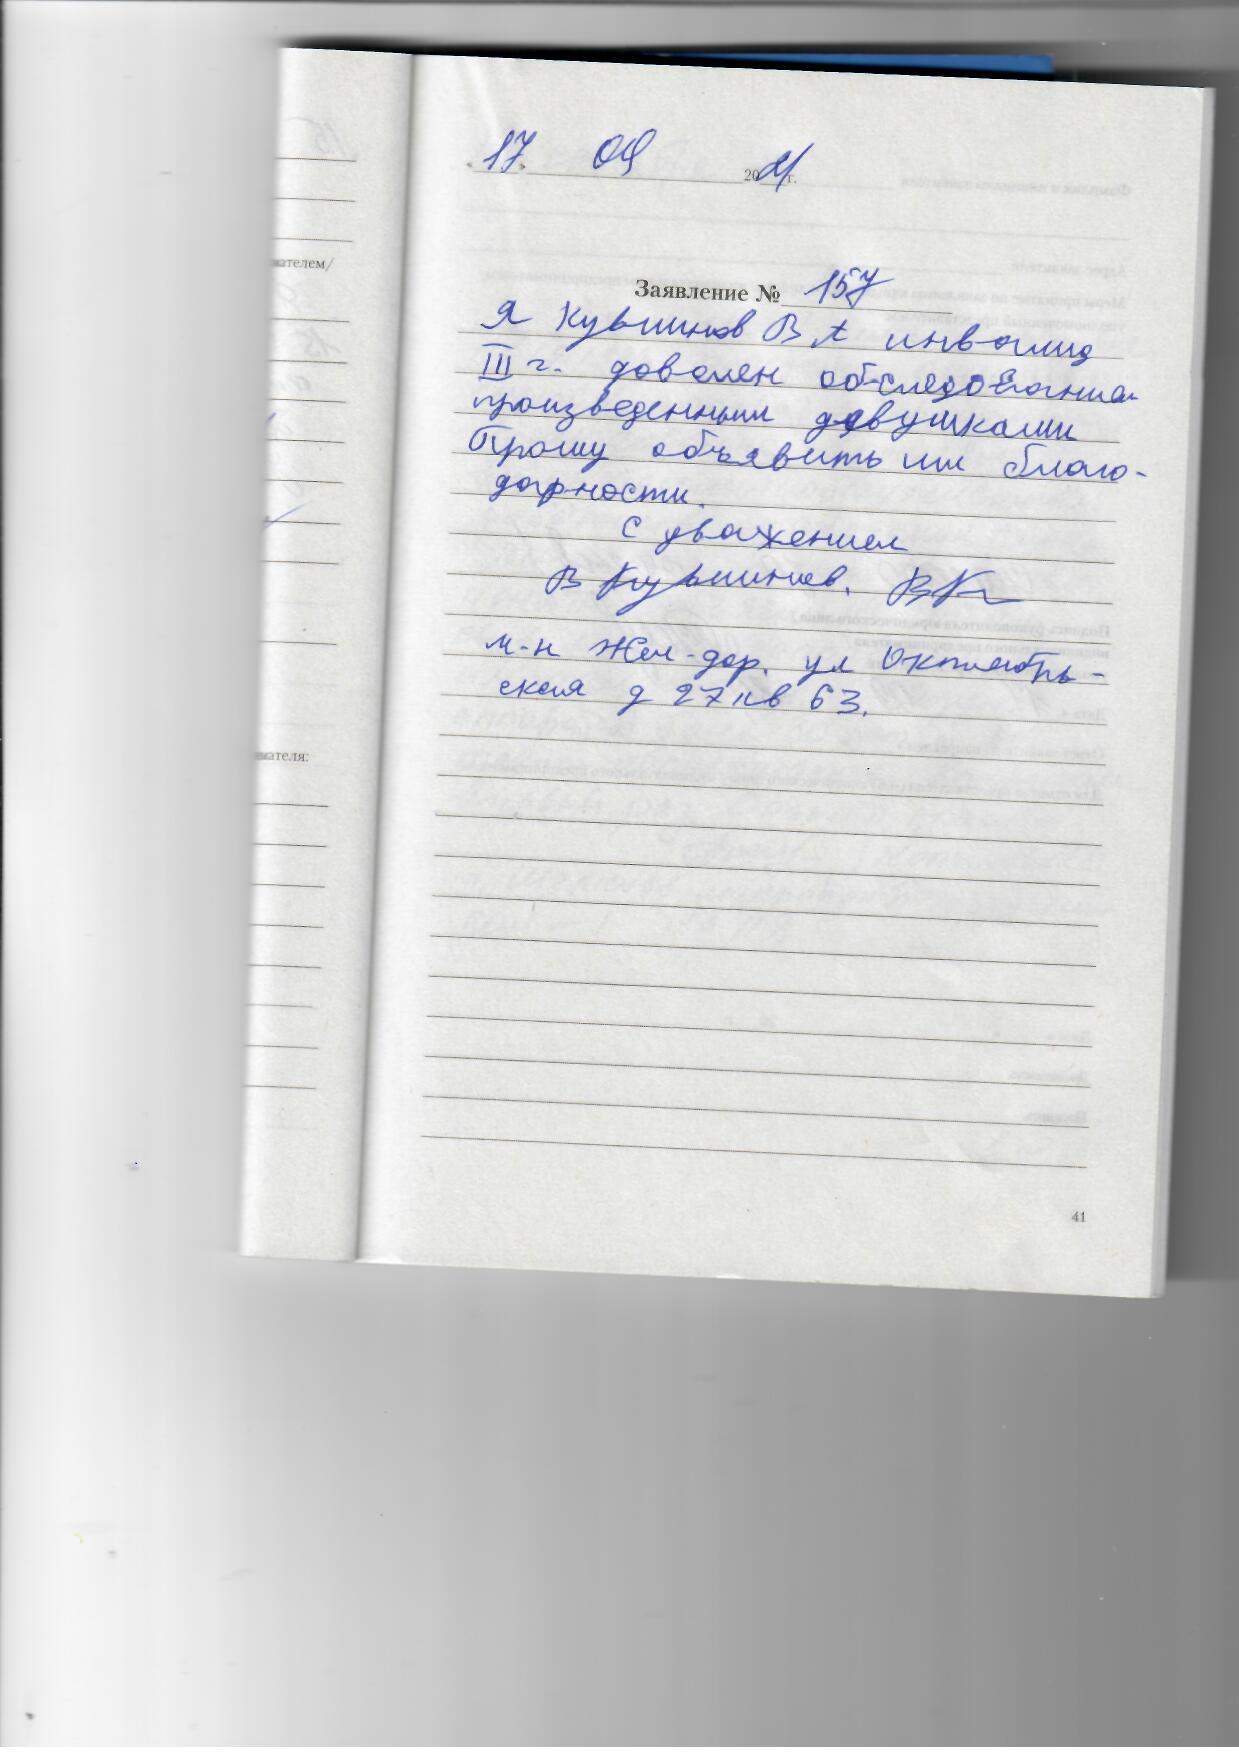 « 17 » 09 2021 г.
Заявление № 157
Я Кувшинов В А инвалид
III г. доволен обследованием
произведенным девушками
Прошу объявить им благо-
дарности.
С уважением
В Кувшинов.
м-н Жел-дор. ул Октябрь-
ская д 27 кв 63.
вателем/
вателя:
41